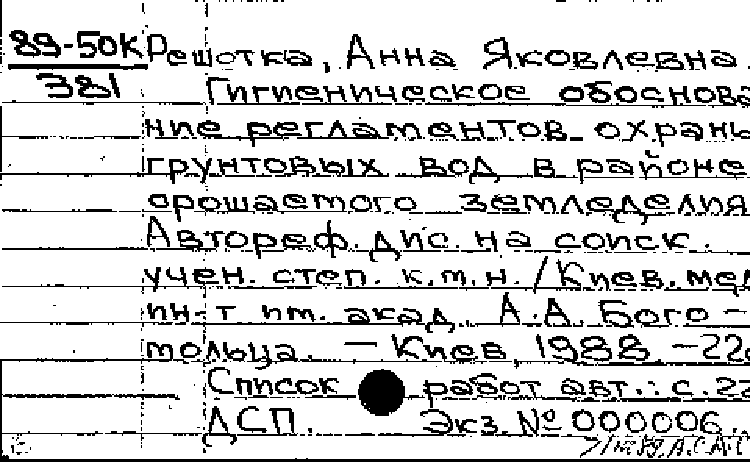 89-50К Решотка, Анна Яковлевна.
381 Гигиеническое обоснова
ние регламентов охраны
грунтовых вод в районе
орошаемого земледелия
Автореф. дис. на соиск.
учен. степ. к.м.н. / Киев. мед
ин-т им. акад. А.А. Бого-
мольца. – Киев, 1988. – 22с
Список работ авт.: с. 22
ДСП. Экз. № 000006.